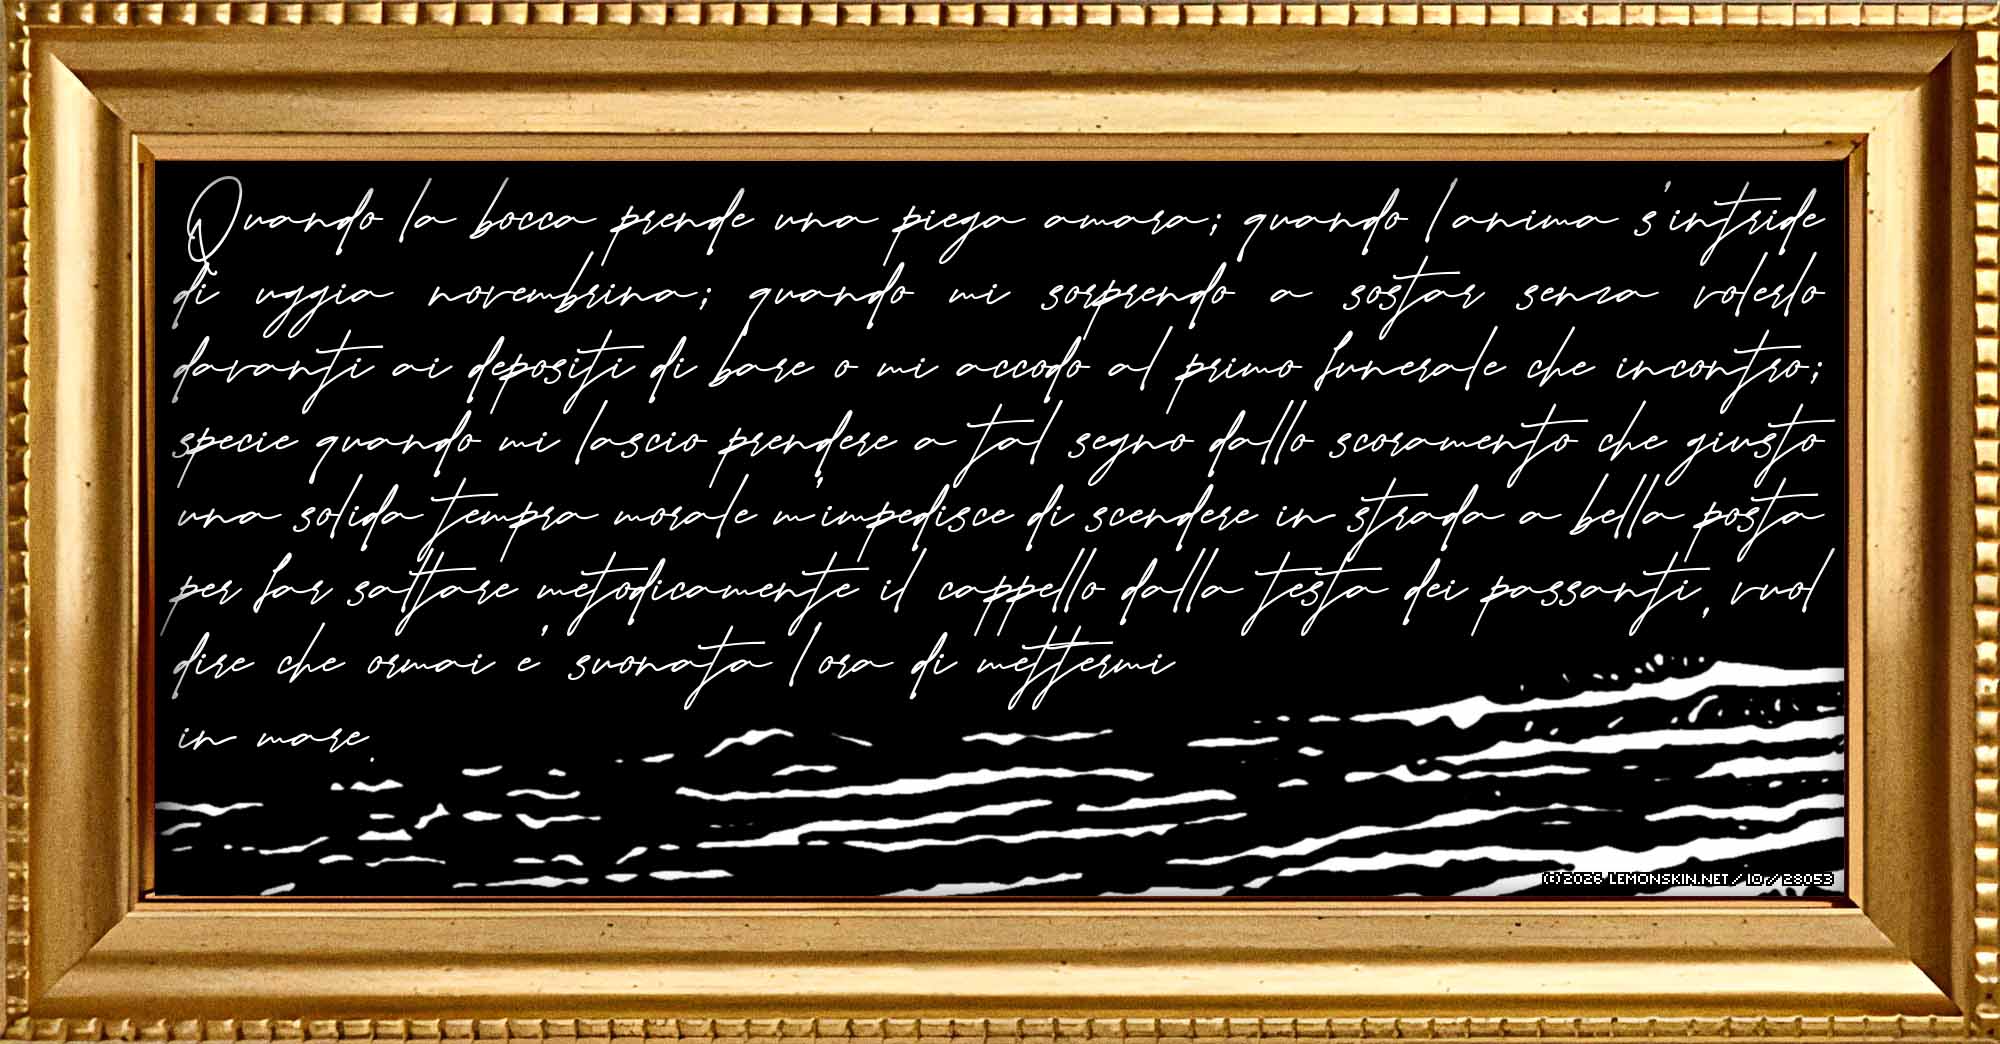 Quando la bocca prende una piega amara; quando l anima s'intride
di uggia novembrina; quando mi sorprendo a sostar senza volerlo
davanti ai depositi di bare o mi accodo al primo funerale che incontro;
specie quando mi lascio prendere a tal segno dallo scoramento che giusto
una solida tempra morale m'impedisce di scendere in strada a bella posta
per far saltare metodicamente il cappello dalla testa dei passanti, vuol
dire che ormai e' suonata l ora di mettermi
in mare.
(C)2026 LEMONSKIN.NET/IO/28053